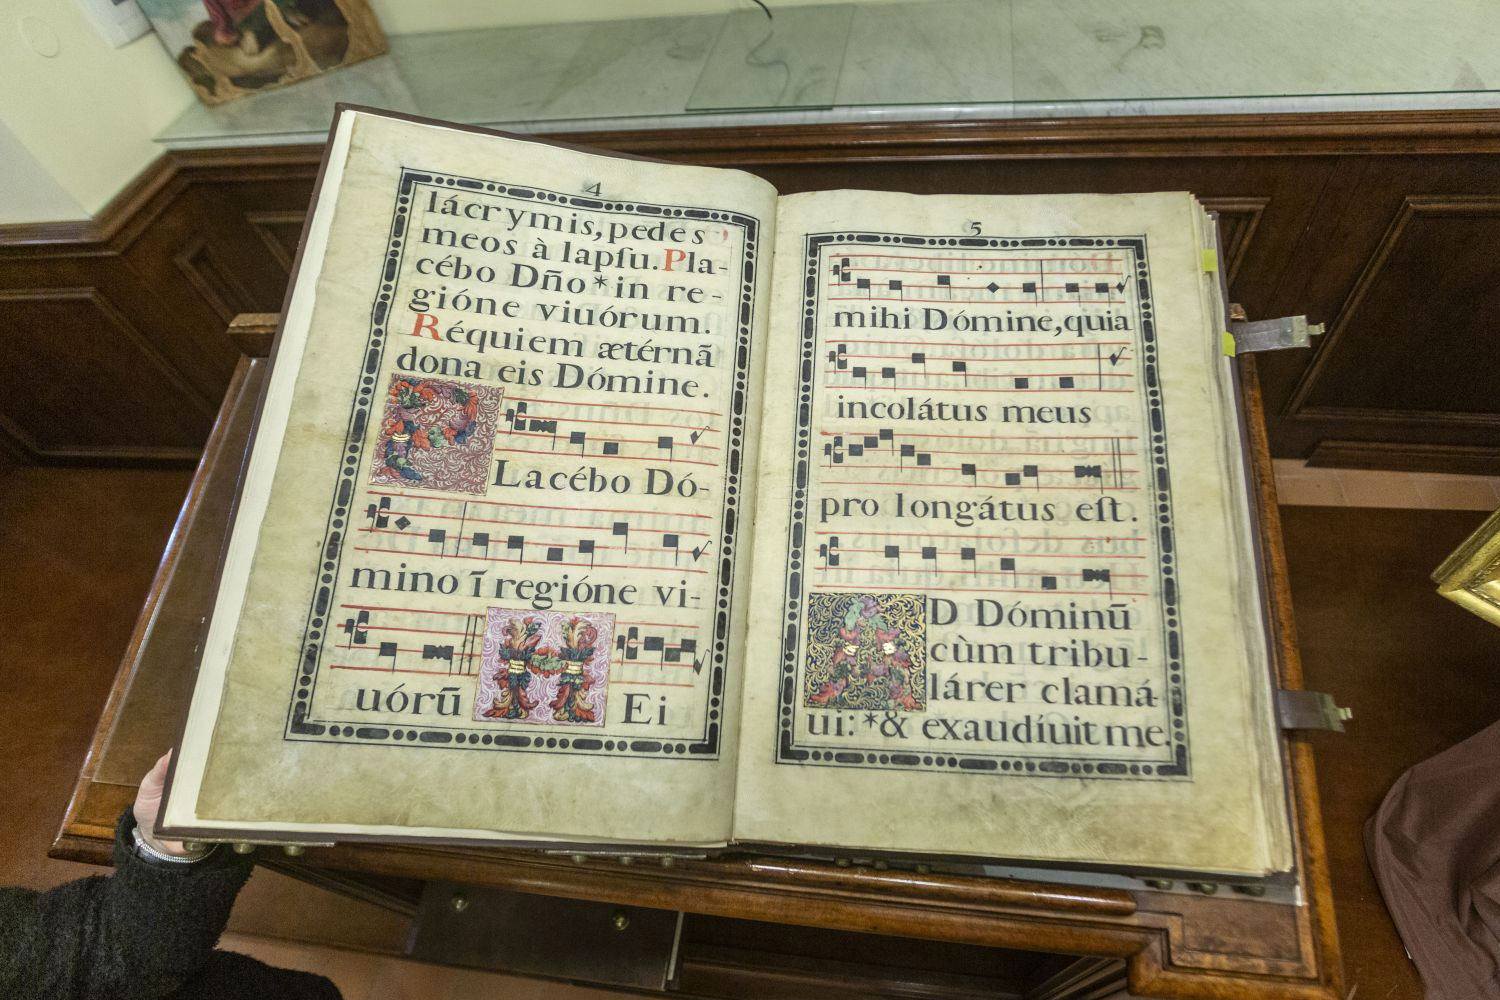 4
lácrymis, pedes
meos à lapſu. Pla-
cébo Dño * in re-
gióne viuórum.
Réquiem ætérnã
dona eis Dómine.
PLacébo Dó-
mino ĩ regióne vi-
uórũ HEi
5
mihi Dómine, quia
incolátus meus
prolongátus eſt.
AD Dóminũ
cùm tribu-
lárer clamá-
ui: * & exaudíuit me.